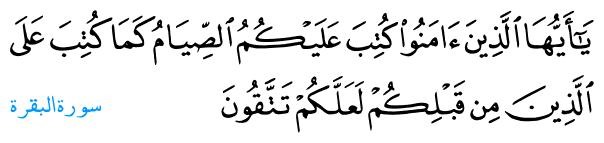 يَٰٓأَيُّهَا ٱلَّذِينَ ءَامَنُوا۟ كُتِبَ عَلَيْكُمُ ٱلصِّيَامُ كَمَا كُتِبَ عَلَى
ٱلَّذِينَ مِن قَبْلِكُمْ لَعَلَّكُمْ تَتَّقُونَ سورة البقرة